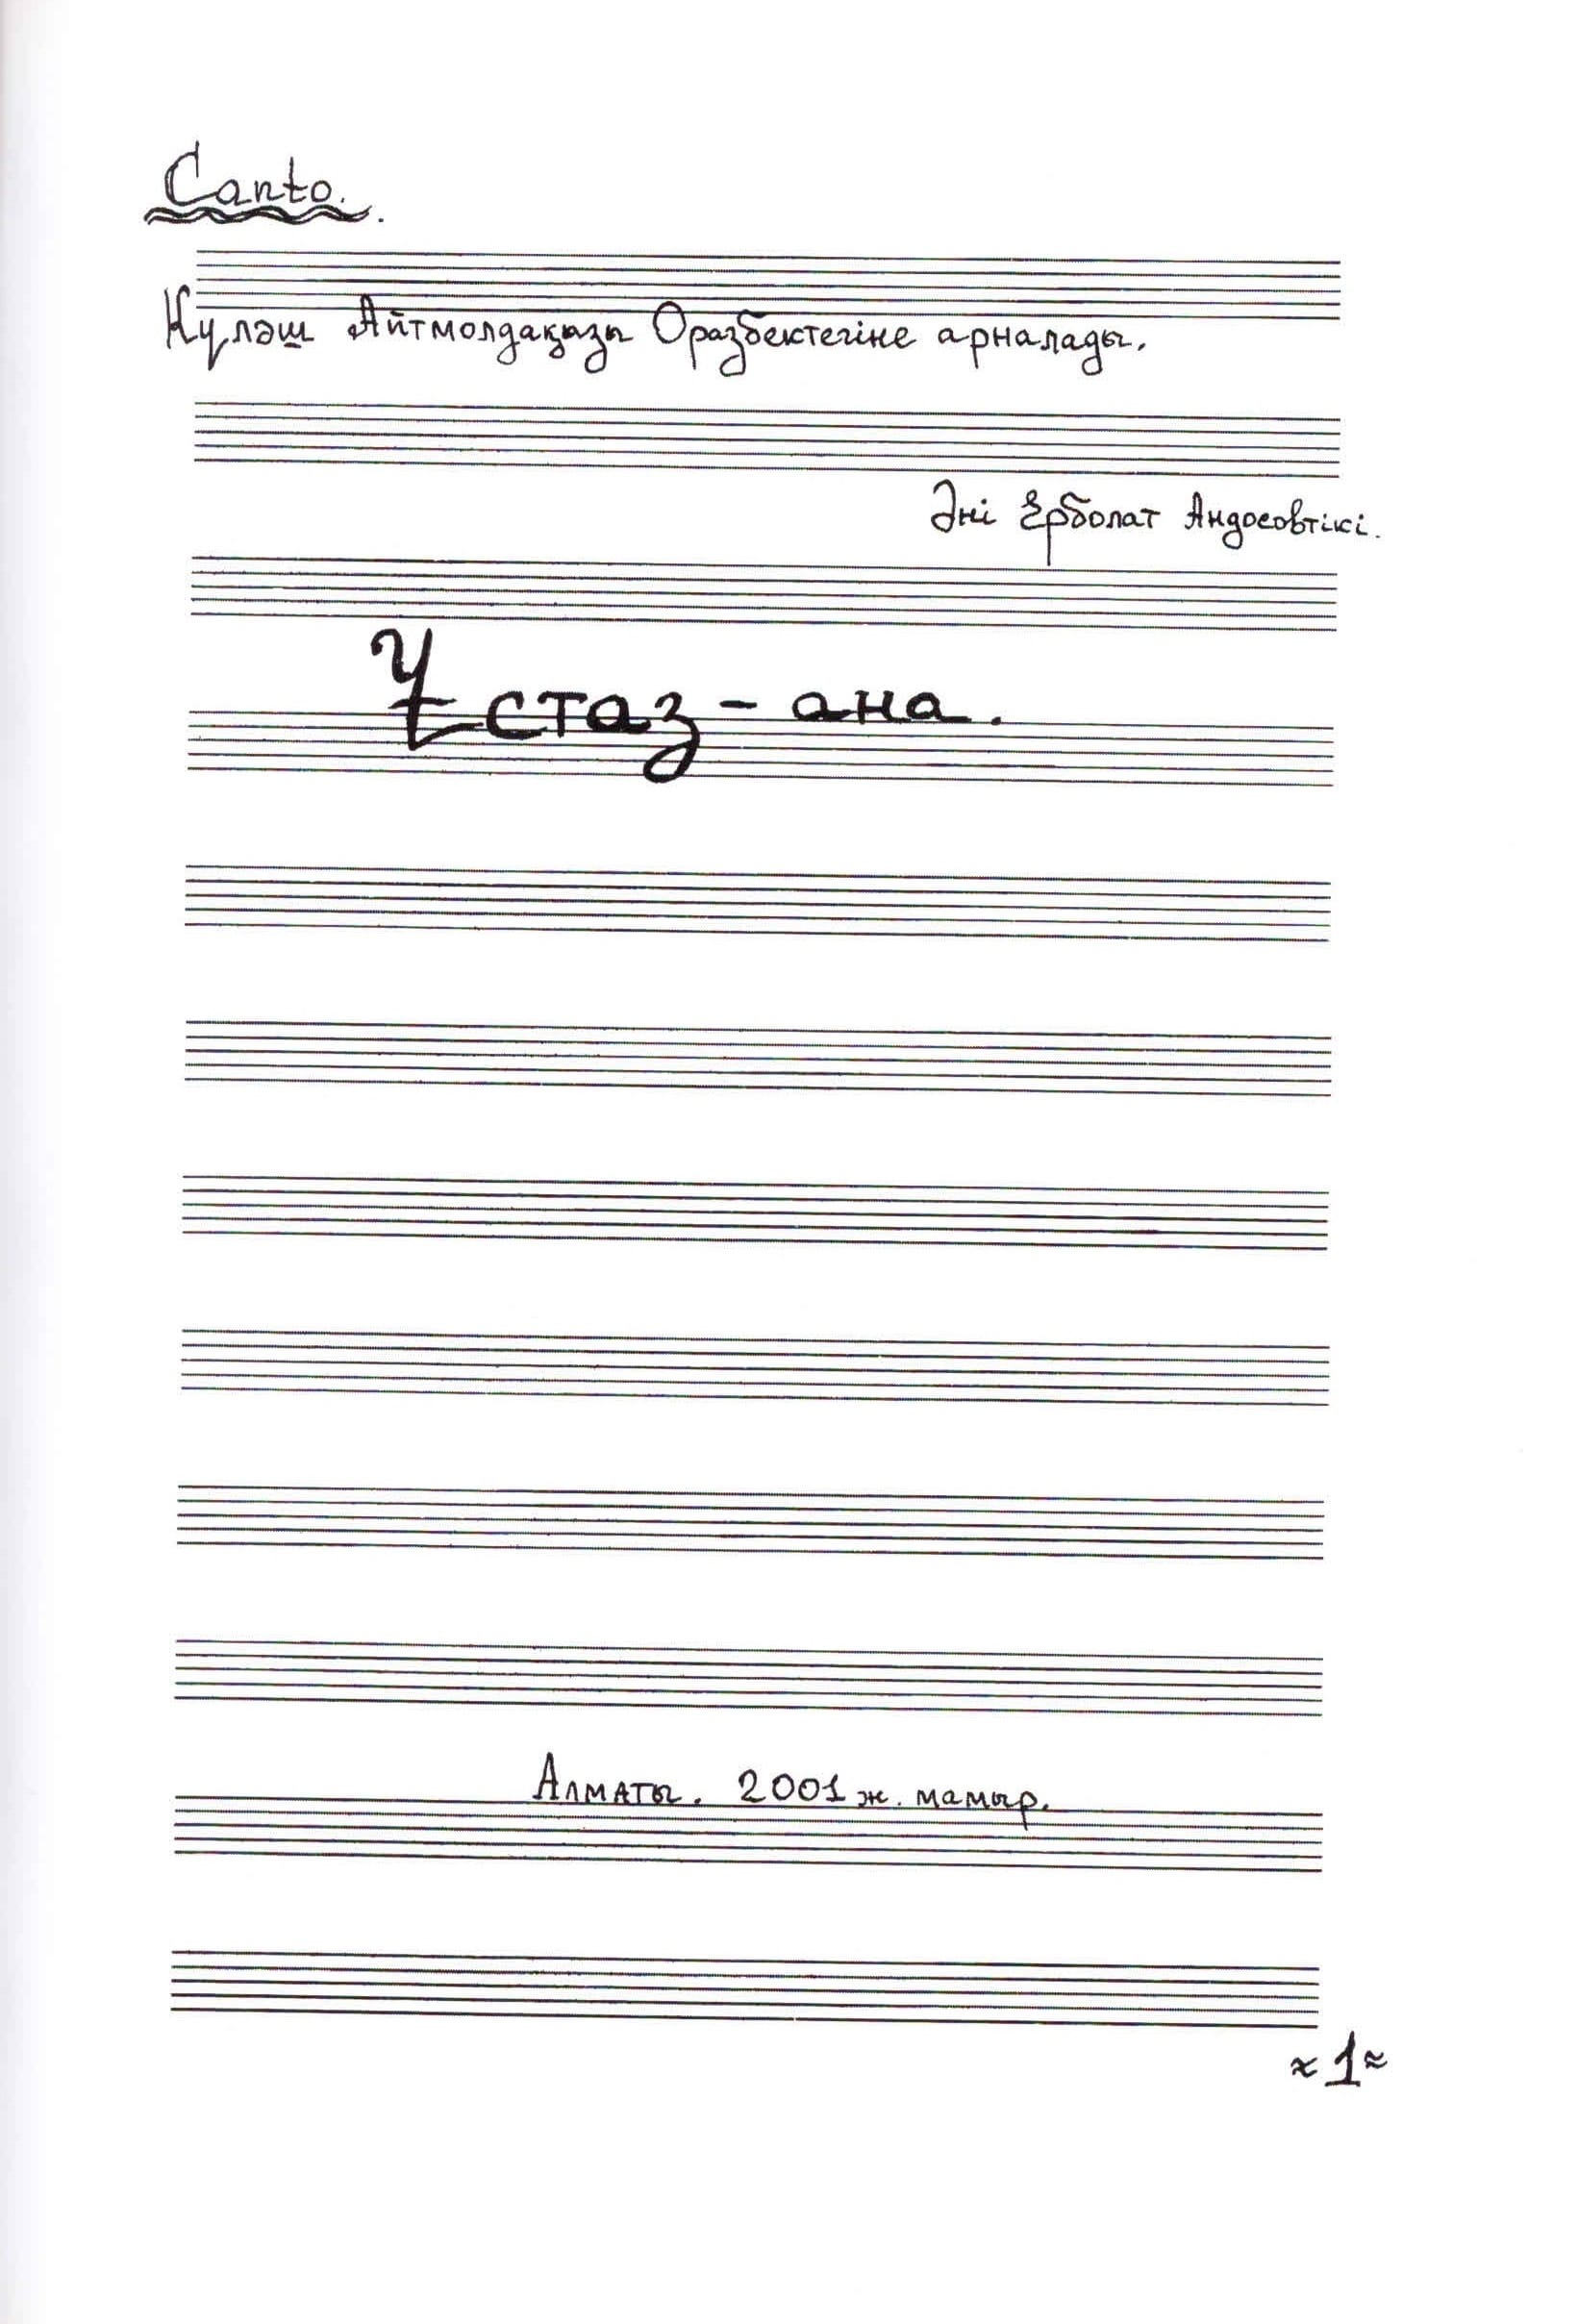 Canto.
Күләш Айтмолдақызы Оразбектегіне арналады.
Әні Ерболат Андосовтікі.
Ұстаз - ана.
Алматы. 2001 ж. мамыр.
≈ 1 ≈